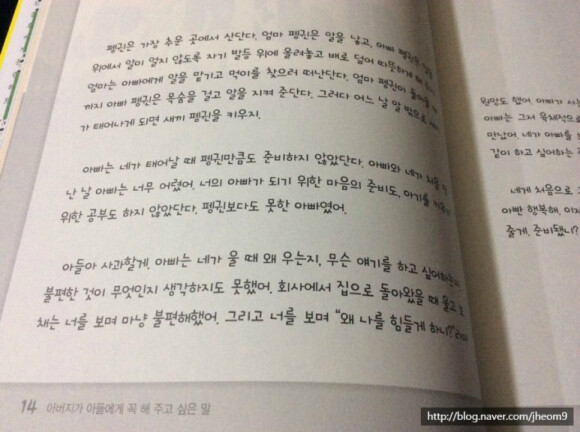 펭귄은 가장 추운 곳에서 산단다. 엄마 펭귄은 알을 낳고, 아빠 펭귄은
위에서 알이 얼지 않도록 자기 발등 위에 올려놓고 배로 덮어 따뜻하게
엄마는 아빠에게 알을 맡기고 먹이를 찾으러 떠난단다. 엄마 펭귄이 돌아올
까지 아빠 펭귄은 목숨을 걸고 알을 지켜 준단다. 그러다 어느 날 알 밖으로
가 태어나게 되면 새끼 펭귄을 키우지.
아빠는 네가 태어날 때 펭귄만큼도 준비하지 않았단다. 아빠와 네가 처음
난 날 아빠는 너무 어렸어. 너의 아빠가 되기 위한 마음의 준비도, 아기를 키우기
위한 공부도 하지 않았단다. 펭귄보다도 못한 아빠였어.
아들아 사과할게. 아빠는 네가 울 때 왜 우는지, 무슨 얘기를 하고 싶어하는지
불편한 것이 무엇인지 생각하지도 못했어. 회사에서 집으로 돌아왔을 때 울고
채는 너를 보며 마냥 불편해했어. 그리고 너를 보며 "왜 나를 힘들게 하니?"라고
14 아버지가 아들에게 꼭 해 주고 싶은 말
원망도 했어. 아빠가 사
아빠는 그저 육체적으로
만났어. 네가 아빠를
같이 하고 싶어하는
네게 처음으로
아빤 행복해. 이제
줄게. 준비됐니?
http://blog.naver.com/jheom9